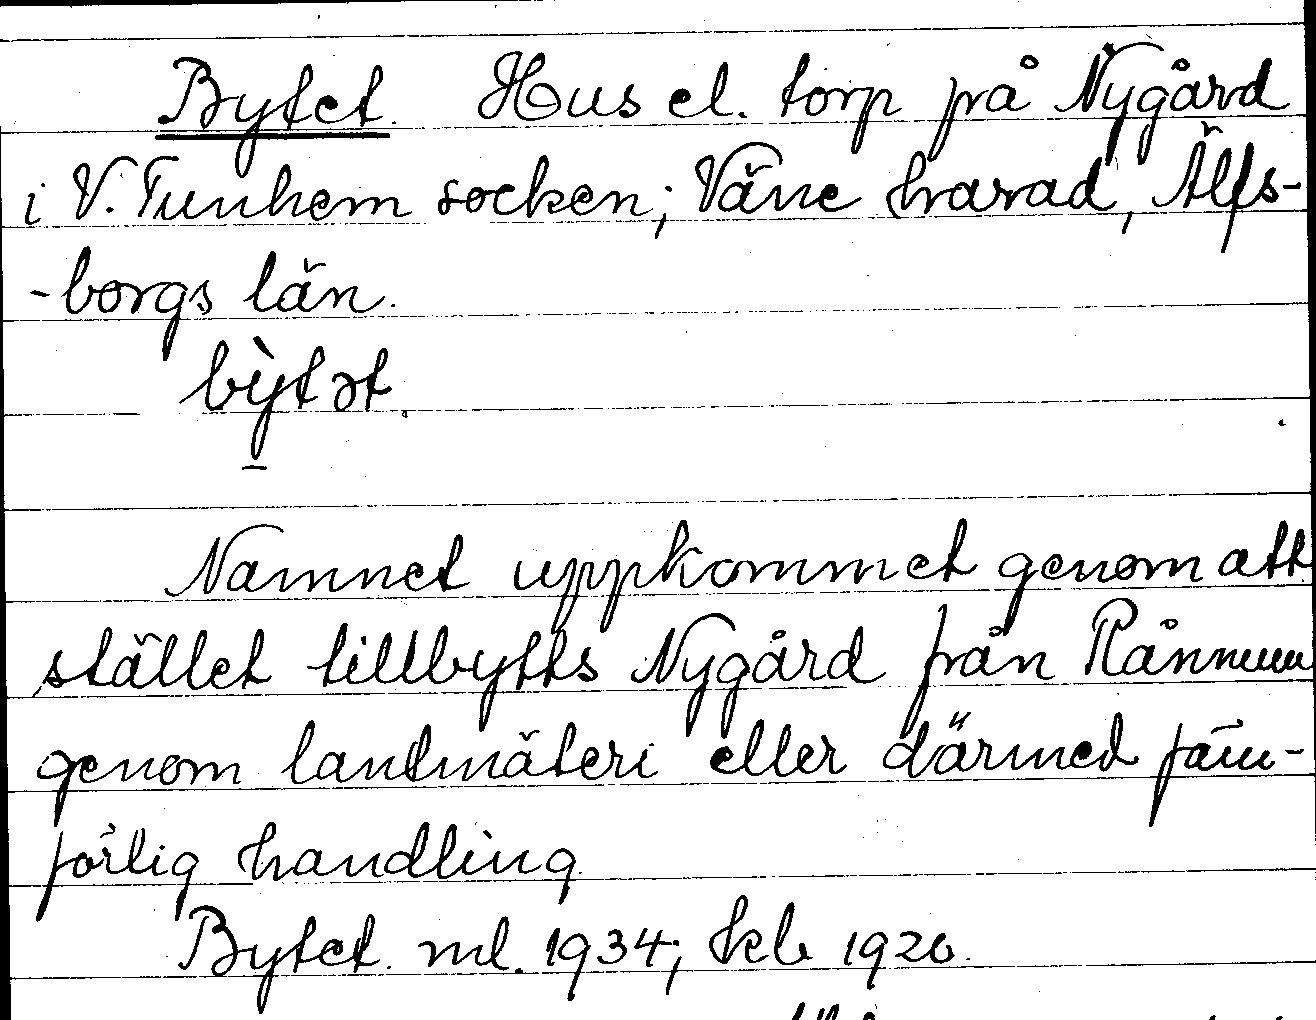 Bytet. Hus el. torp på Nygård
i V. Tunhem socken; Väne härad, Älfs-
-borgs län.
bỳtət.
Namnet uppkommet genom att
stället tillbytts Nygård från Rånnum
genom lantmäteri eller därmed jäm-
förlig handling
Bytet. ml. 1934; kb 1920.